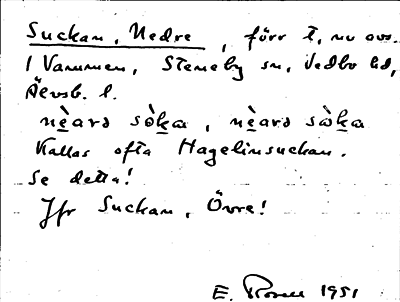 Suckan, Nedre, förr t, nu avs.
I Vammen, Steneby sn, Vedbo hd,
Älvsb. l.
nèarə sò̀ka, nèarə sò̀ka
Kallas ofta Hagelinsuckan.
Se detta!
Jfr Suckan, Övre!
E. 1951